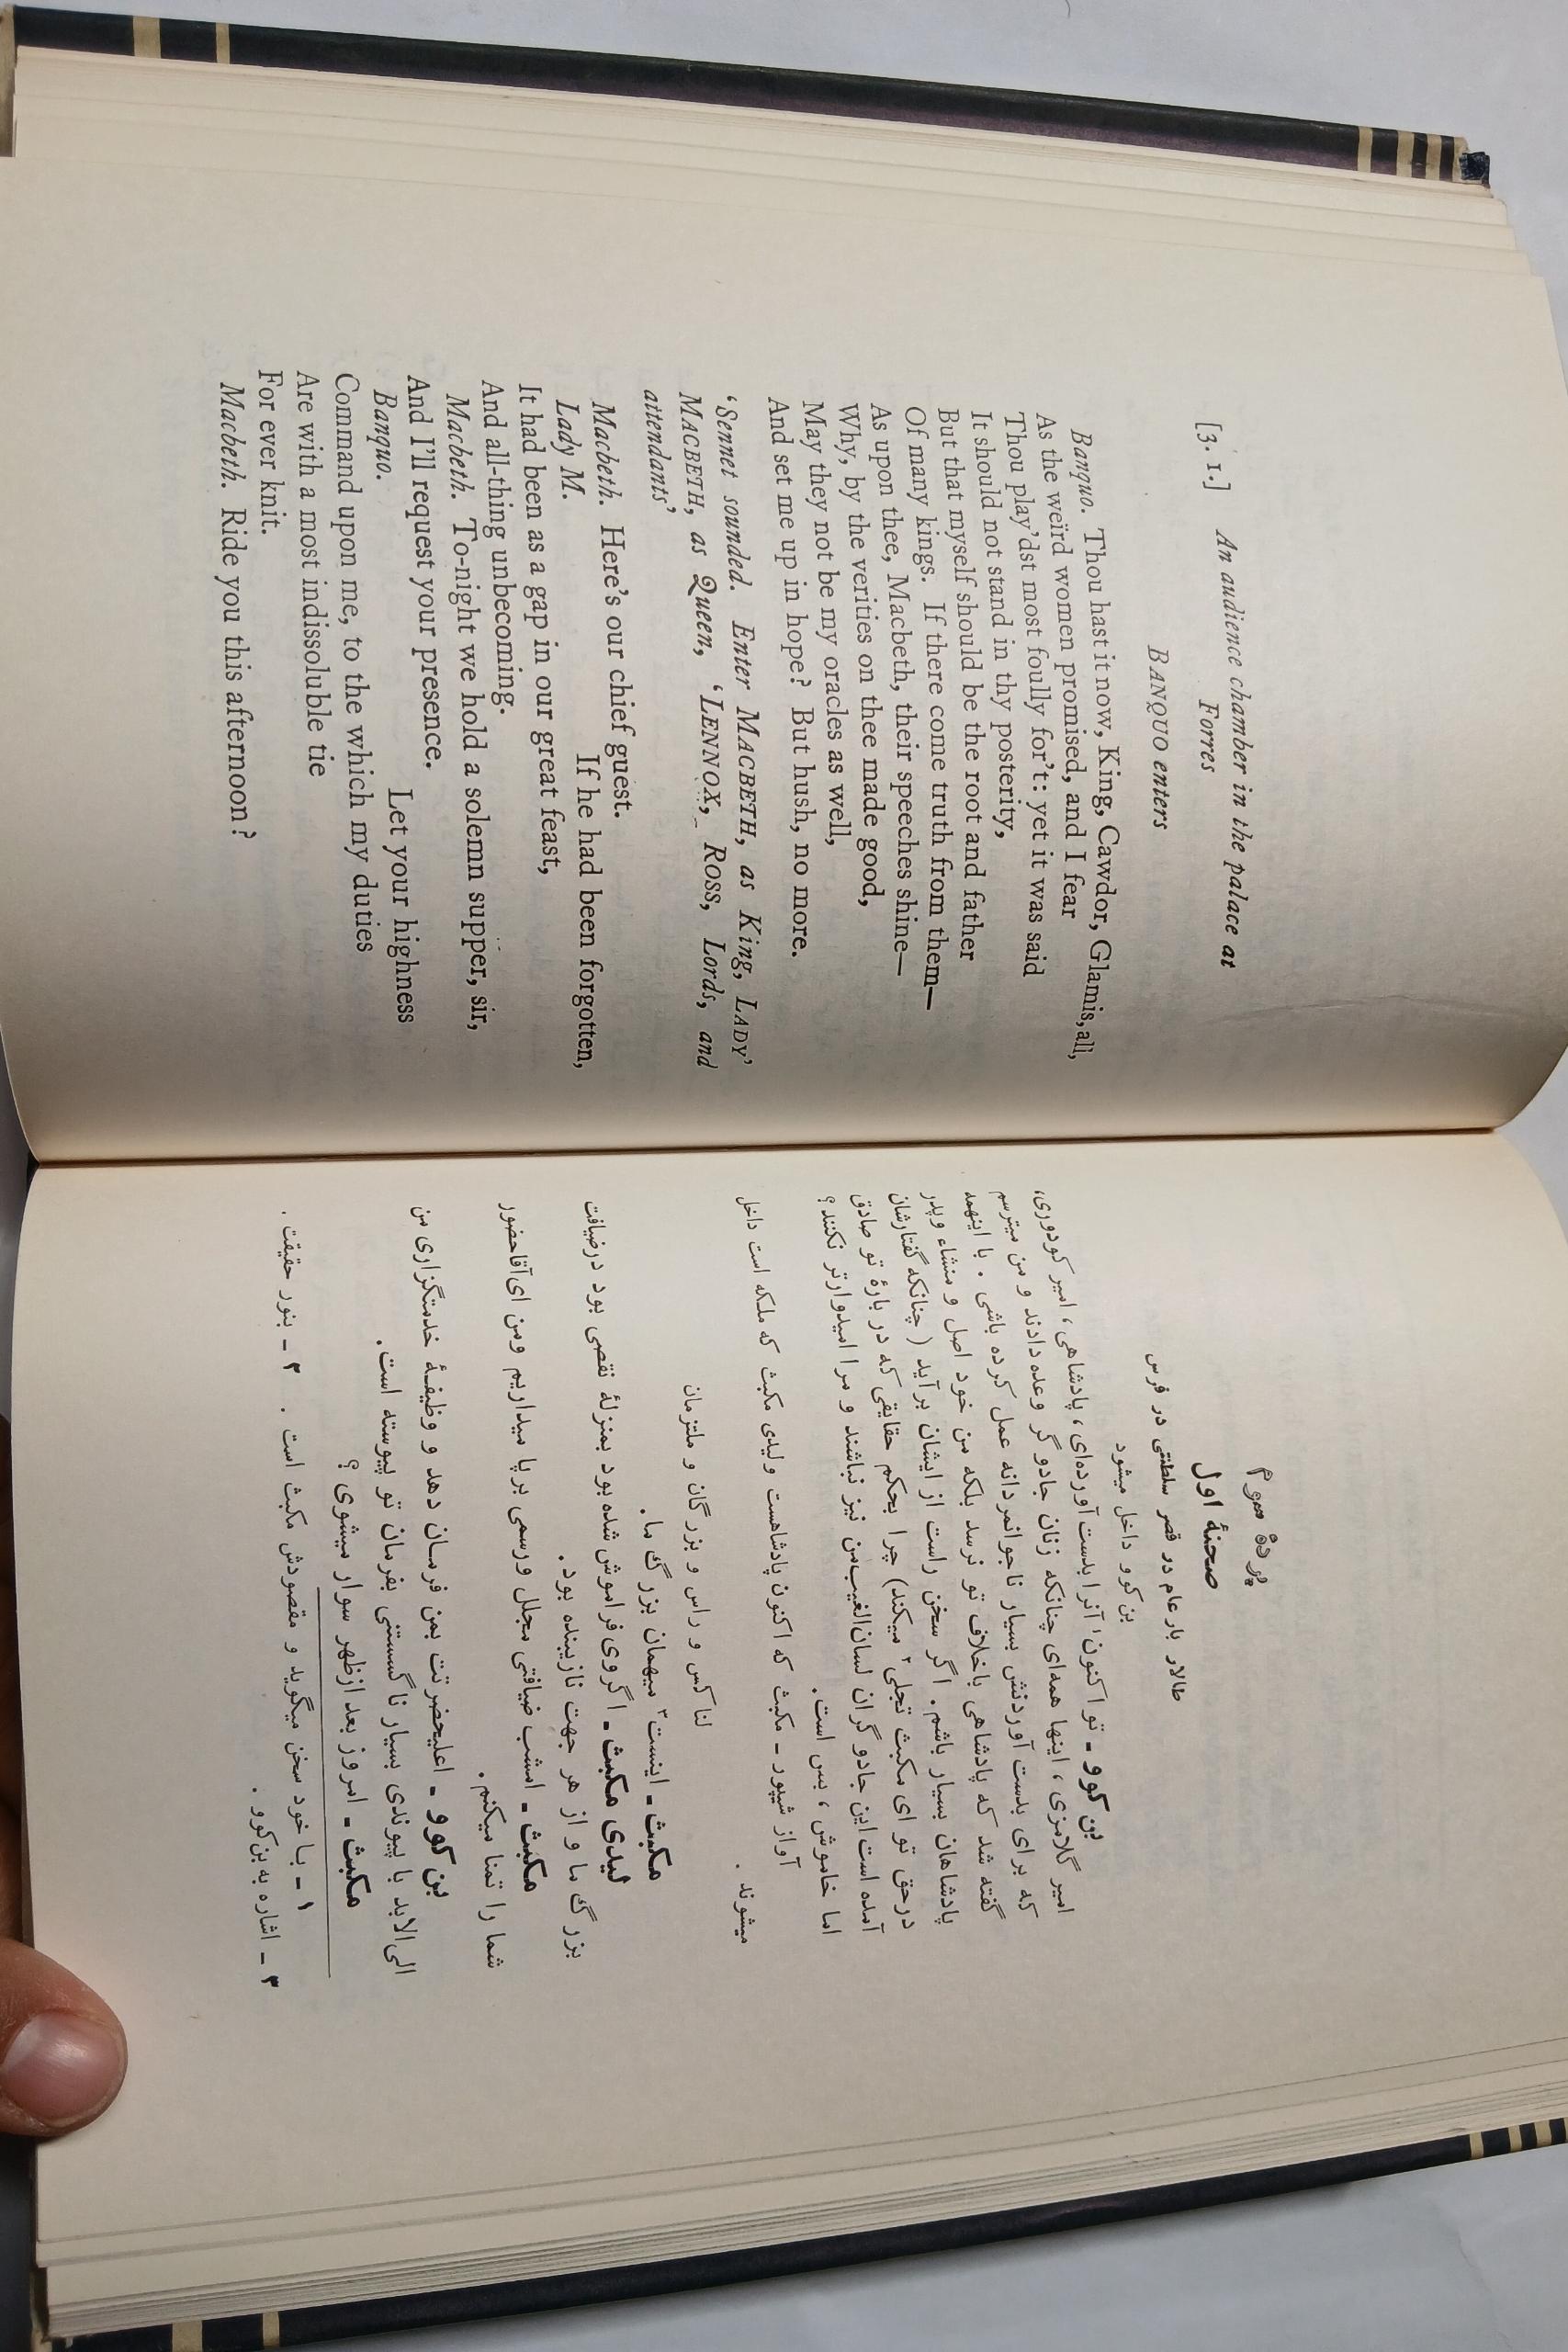 [3. 1.] An audience chamber in the palace at
Forres
BANQUO enters
Banquo. Thou hast it now, King, Cawdor, Glamis, all,
As the weïrd women promised, and I fear
Thou play'dst most foully for't: yet it was said
It should not stand in thy posterity,
But that myself should be the root and father
Of many kings. If there come truth from them—
As upon thee, Macbeth, their speeches shine—
Why, by the verities on thee made good,
May they not be my oracles as well,
And set me up in hope? But hush, no more.
'Sennet sounded. Enter MACBETH, as King, LADY'
MACBETH, as Queen, 'LENNOX, ROSS, Lords, and
attendants'
Macbeth. Here's our chief guest.
Lady M. If he had been forgotten,
It had been as a gap in our great feast,
And all-thing unbecoming.
Macbeth. To-night we hold a solemn supper, sir,
And I'll request your presence.
Banquo. Let your highness
Command upon me, to the which my duties
Are with a most indissoluble tie
For ever knit.
Macbeth. Ride you this afternoon?
پردهٔ سوم
صحنهٔ اول
طالار بارعام در قصر سلطنتی در فرس
بن‌کوو داخل میشود
بن‌کوو - تو اکنون۱ آنرا بدست آورده‌ای، پادشاهی، امیر کودوری،
امیر گلامزی، اینها همه‌ای چنانکه زنان جادوگر وعده دادند و من میترسم
که برای بدست آوردنش بسیار ناجوانمردانه عمل کرده باشی. با اینهمه
گفته شد که پادشاهی باخلاف تو نرسد بلکه من خود اصل و منشاء و پدر
پادشاهان بسیار باشم. اگر سخن راست از ایشان برآید (چنانکه گفتارشان
درحق تو ای مکبث تجلی۲ میکند) چرا بحکم حقایقی که دربارهٔ تو صادق
آمده است این جادوگران لسان‌الغیب من نیز نباشند و مرا امیدوارتر نکنند؟
اما خاموش، بس است.
آواز شیپور - مکبث که اکنون پادشاهست و لیدی مکبث که ملکه است داخل
میشوند.
لناکس و راس و بزرگان و ملتزمان
مکبث - اینست۳ میهمان بزرگ ما.
لیدی مکبث - اگر وی فراموش شده بود بمنزلهٔ نقصی بود درضیافت
بزرگ ما و از هر جهت نازیبنده بود.
مکبث - امشب ضیافتی مجلل و رسمی برپا میداریم ومن ای آقا حضور
شما را تمنا میکنم.
بن‌کوو - اعلیحضرتت بمن فرمان دهد و وظیفهٔ خدمتگزاری من
الی‌الابد با پیوندی بسیار ناگسستنی بفرمان تو پیوسته است.
مکبث - امروز بعد ازظهر سوار میشوی؟
۱ - با خود سخن میگوید و مقصودش مکبث است. ۲ - بنور حقیقت.
۳ - اشاره به بن‌کوو.